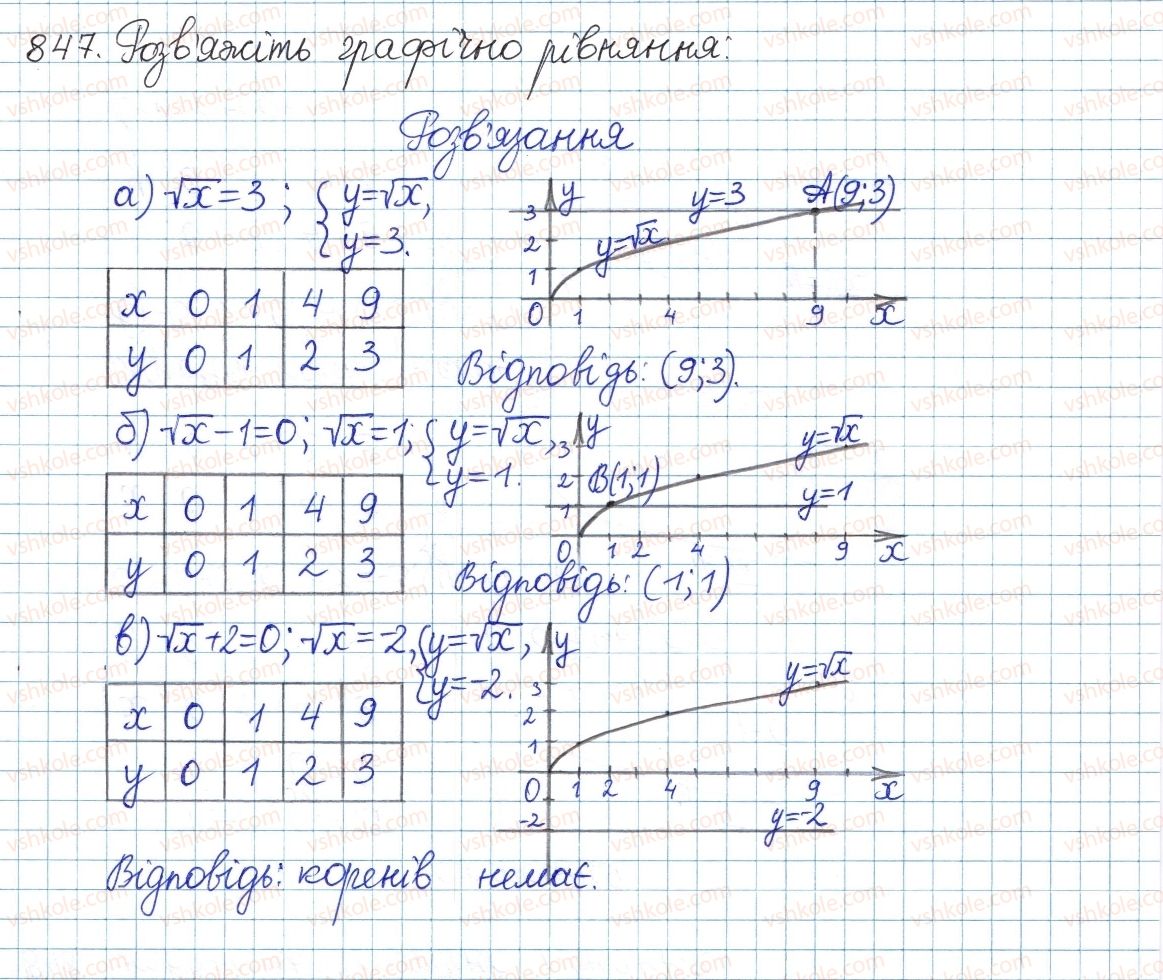 847. Розв'яжіть графічно рівняння:
Розв'язання
а) √x = 3 ; { y=√x,
y=3.
x 0 1 4 9
y 0 1 2 3
y
3 y=3 A(9;3)
2 y=√x
1
0 1 4 9 x
Відповідь: (9;3).
б) √x – 1=0; √x = 1; { y=√x,
y=1.
x 0 1 4 9
y 0 1 2 3
y
3 y=√x
2 B(1;1)
1 y=1
0 1 2 4 9 x
Відповідь: (1;1)
в) √x +2=0; √x = -2, { y=√x,
y=-2.
x 0 1 4 9
y 0 1 2 3
y
3 y=√x
2
1
0 1 2 4 9 x
-2 y=-2
Відповідь: коренів немає.
vshkole.com